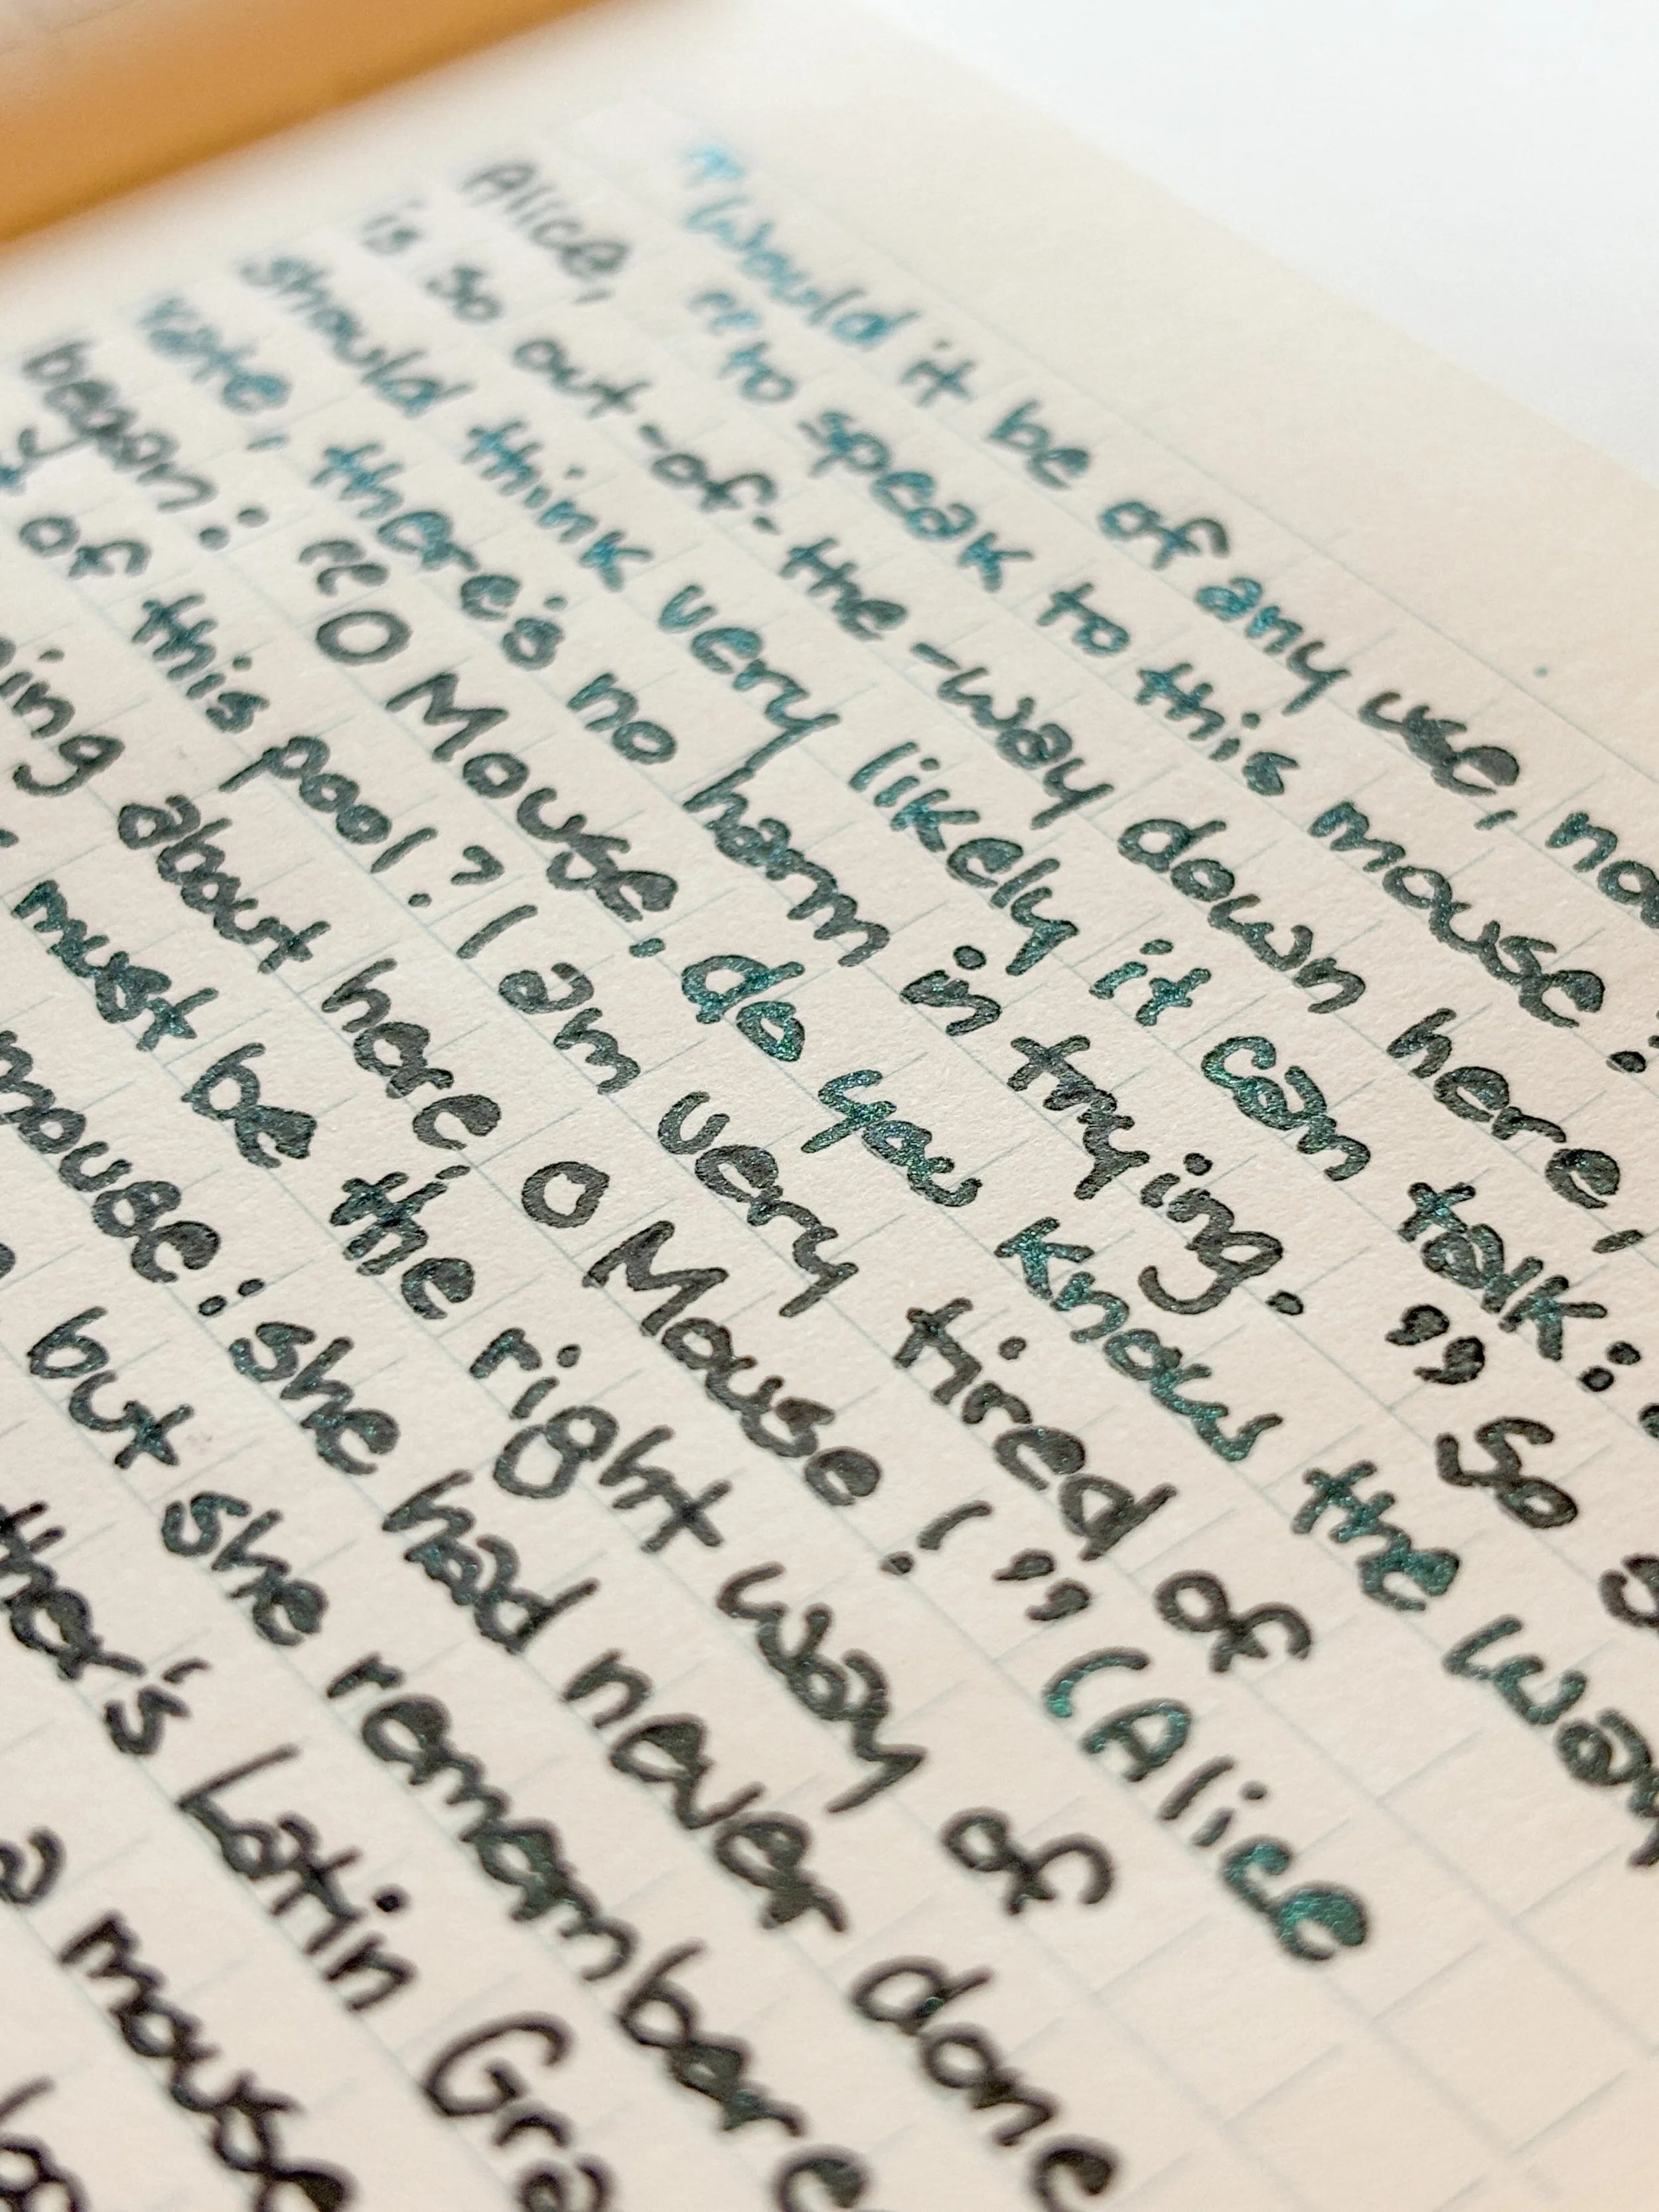 "Would it be of any use, no
Alice, "to speak to this mouse?
is so out-of-the-way down here,
should think very likely it can talk:
rate, there's no harm in trying." So
began: "O Mouse, do you know the way
of this pool? I am very tired of
about here, O Mouse!" (Alice
must be the right way of
mouse: she had never done
but she remembere
Latin Gra
a mouse